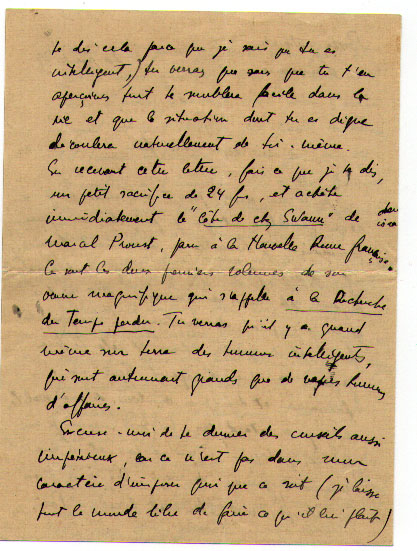 te dis cela parce que je sais que tu es
intelligent,) tu verras que sans que tu t'en
aperçoives tout te semblera facile dans la
vie et que la situation dont tu es digne
découlera naturellement de toi-même.
En recevant cette lettre, fais ce que je te dis,
un petit sacrifice de 24 frs, et achète
immédiatement le "Côté de chez Swann" de
Marcel Proust, paru à la Nouvelle Revue française.
Ce sont les deux premiers volumes de son
œuvre magnifique qui s'appelle à la Recherche
du Temps perdu. Tu verras qu'il y a quand
même sur terre des hommes intelligents,
qui sont autrement grands que de hommes
d'affaires.
Excuse-moi de te donner des conseils aussi
impérieux, car ce n'est pas dans mon
caractère d'imposer quoi que ce soit (je laisse
tout le monde libre de faire ce qu'il lui plaît)